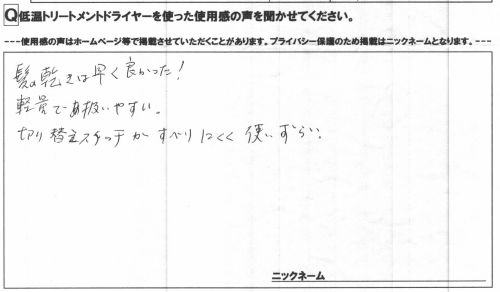 Q低温トリートメントドライヤーを使った使用感の声を聞かせてください。
---使用感の声はホームページ等で掲載させていただくことがあります。プライバシー保護のため掲載はニックネームとなります。---
髪の乾きは早く良かった!
軽量であ扱いやすい。
切り替えスイッチがすべりにくく使いずらい.
ニックネーム